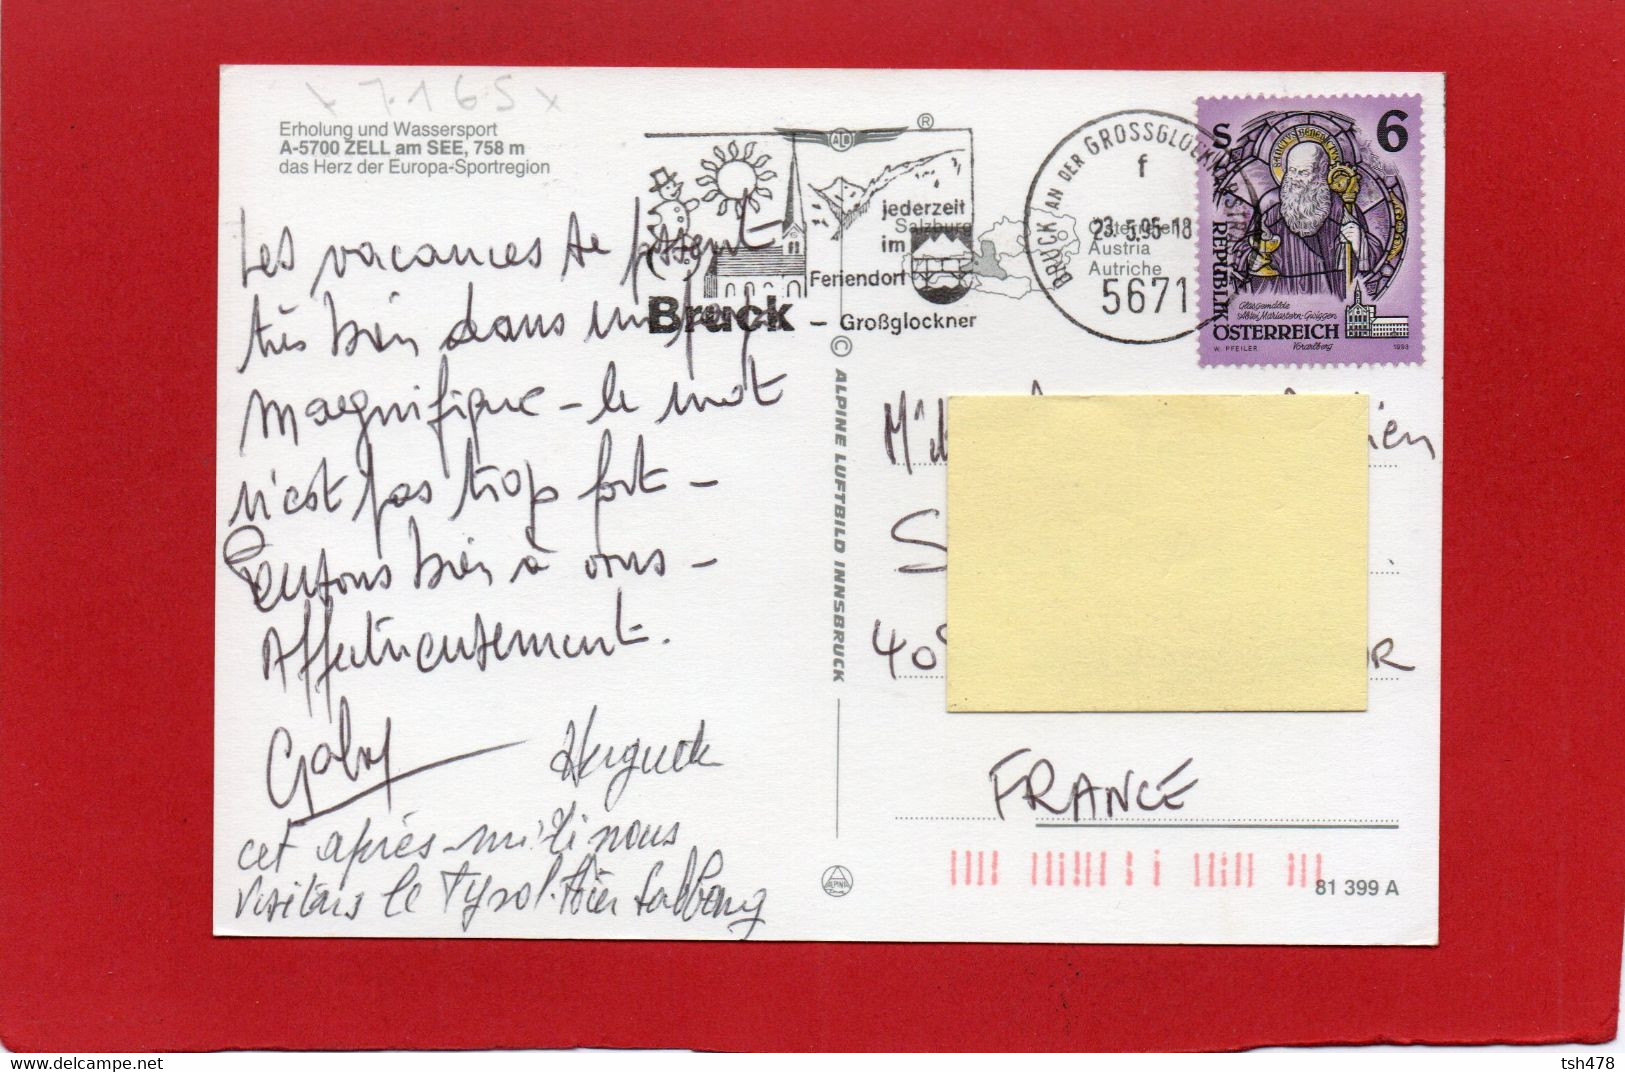 7.165
Erholung und Wassersport
A-5700 ZELL am SEE, 758 m
das Herz der Europa-Sportregion
Les vacances se passent
très bien dans un pays
magnifique - le mot
n'est pas trop fort -
Pensons bien à vous -
Affectueusement.
Gaby Huguette
cet après-midi nous
visitons le Tyrol. Hier Salzbourg
ALB
®
jederzeit
im
Feriendorf
Bruck - Großglockner
Salzburg
Österreich
Austria
Autriche
BRUCK AN DER GROSSGLOCKNERSTR.
f
23.5.95-18
5671
S 6
SANCTUS BENEDICTUS
REPUBLIK
ÖSTERREICH
Glasgemälde
Abtei Mariastern-Gwiggen
Vorarlberg
W. PFEILER
1993
© ALPINE LUFTBILD INNSBRUCK
ALPINE
S
40
OR
FRANCE
81 399 A
tsh478